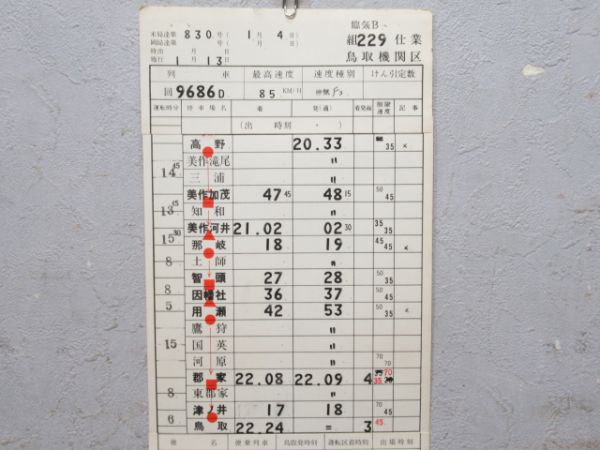 臨気B
米局達第 830 号 ( 1月 4日 )
岡局達第 号 ( 月 日 )
組 229 仕業
時出 月 日
施行 1月 13日
鳥取機関区
列 車 最高速度 速度種別 けん引定数
回 9686D 85 KM/H
運転時分 停車場名 着 発(通) 着発線 制限速度 記事
(出 時刻 ・ )
高野 20.33 35 ×
美作滝尾 〃
14 45 三浦 〃
美作加茂 47 45 48 15 50 45
13 45 知和 〃
美作河井 21.02 02 30 35 35
15 30 那岐 18 19 45 45 ×
土師 〃
8 智頭 27 28 35
8 因幡社 36 37 50 45
5 用瀬 42 53 35 ×
鷹狩 〃
15 国英 〃
河原 〃 70 70
郡家 22.08 22.09 4 35 70
8 東郡家 〃
津ノ井 17 18 70 45
6 鳥取 22.24 = 3 45
種 名 便乗列車 鳥取発時刻 運転区着時刻 出場時刻